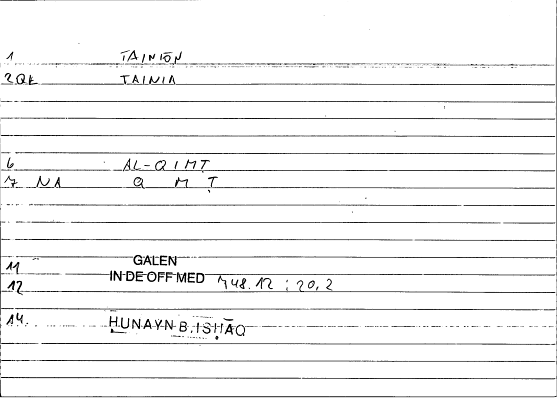 1 TAINIŌN
2QE TAINIA
6 AL-QIMṬ
7 NA Q M Ṭ
11 GALEN
12 IN DE OFF MED 748.12 : 20,2
14. ḤUNAYN B. ISḤĀQ